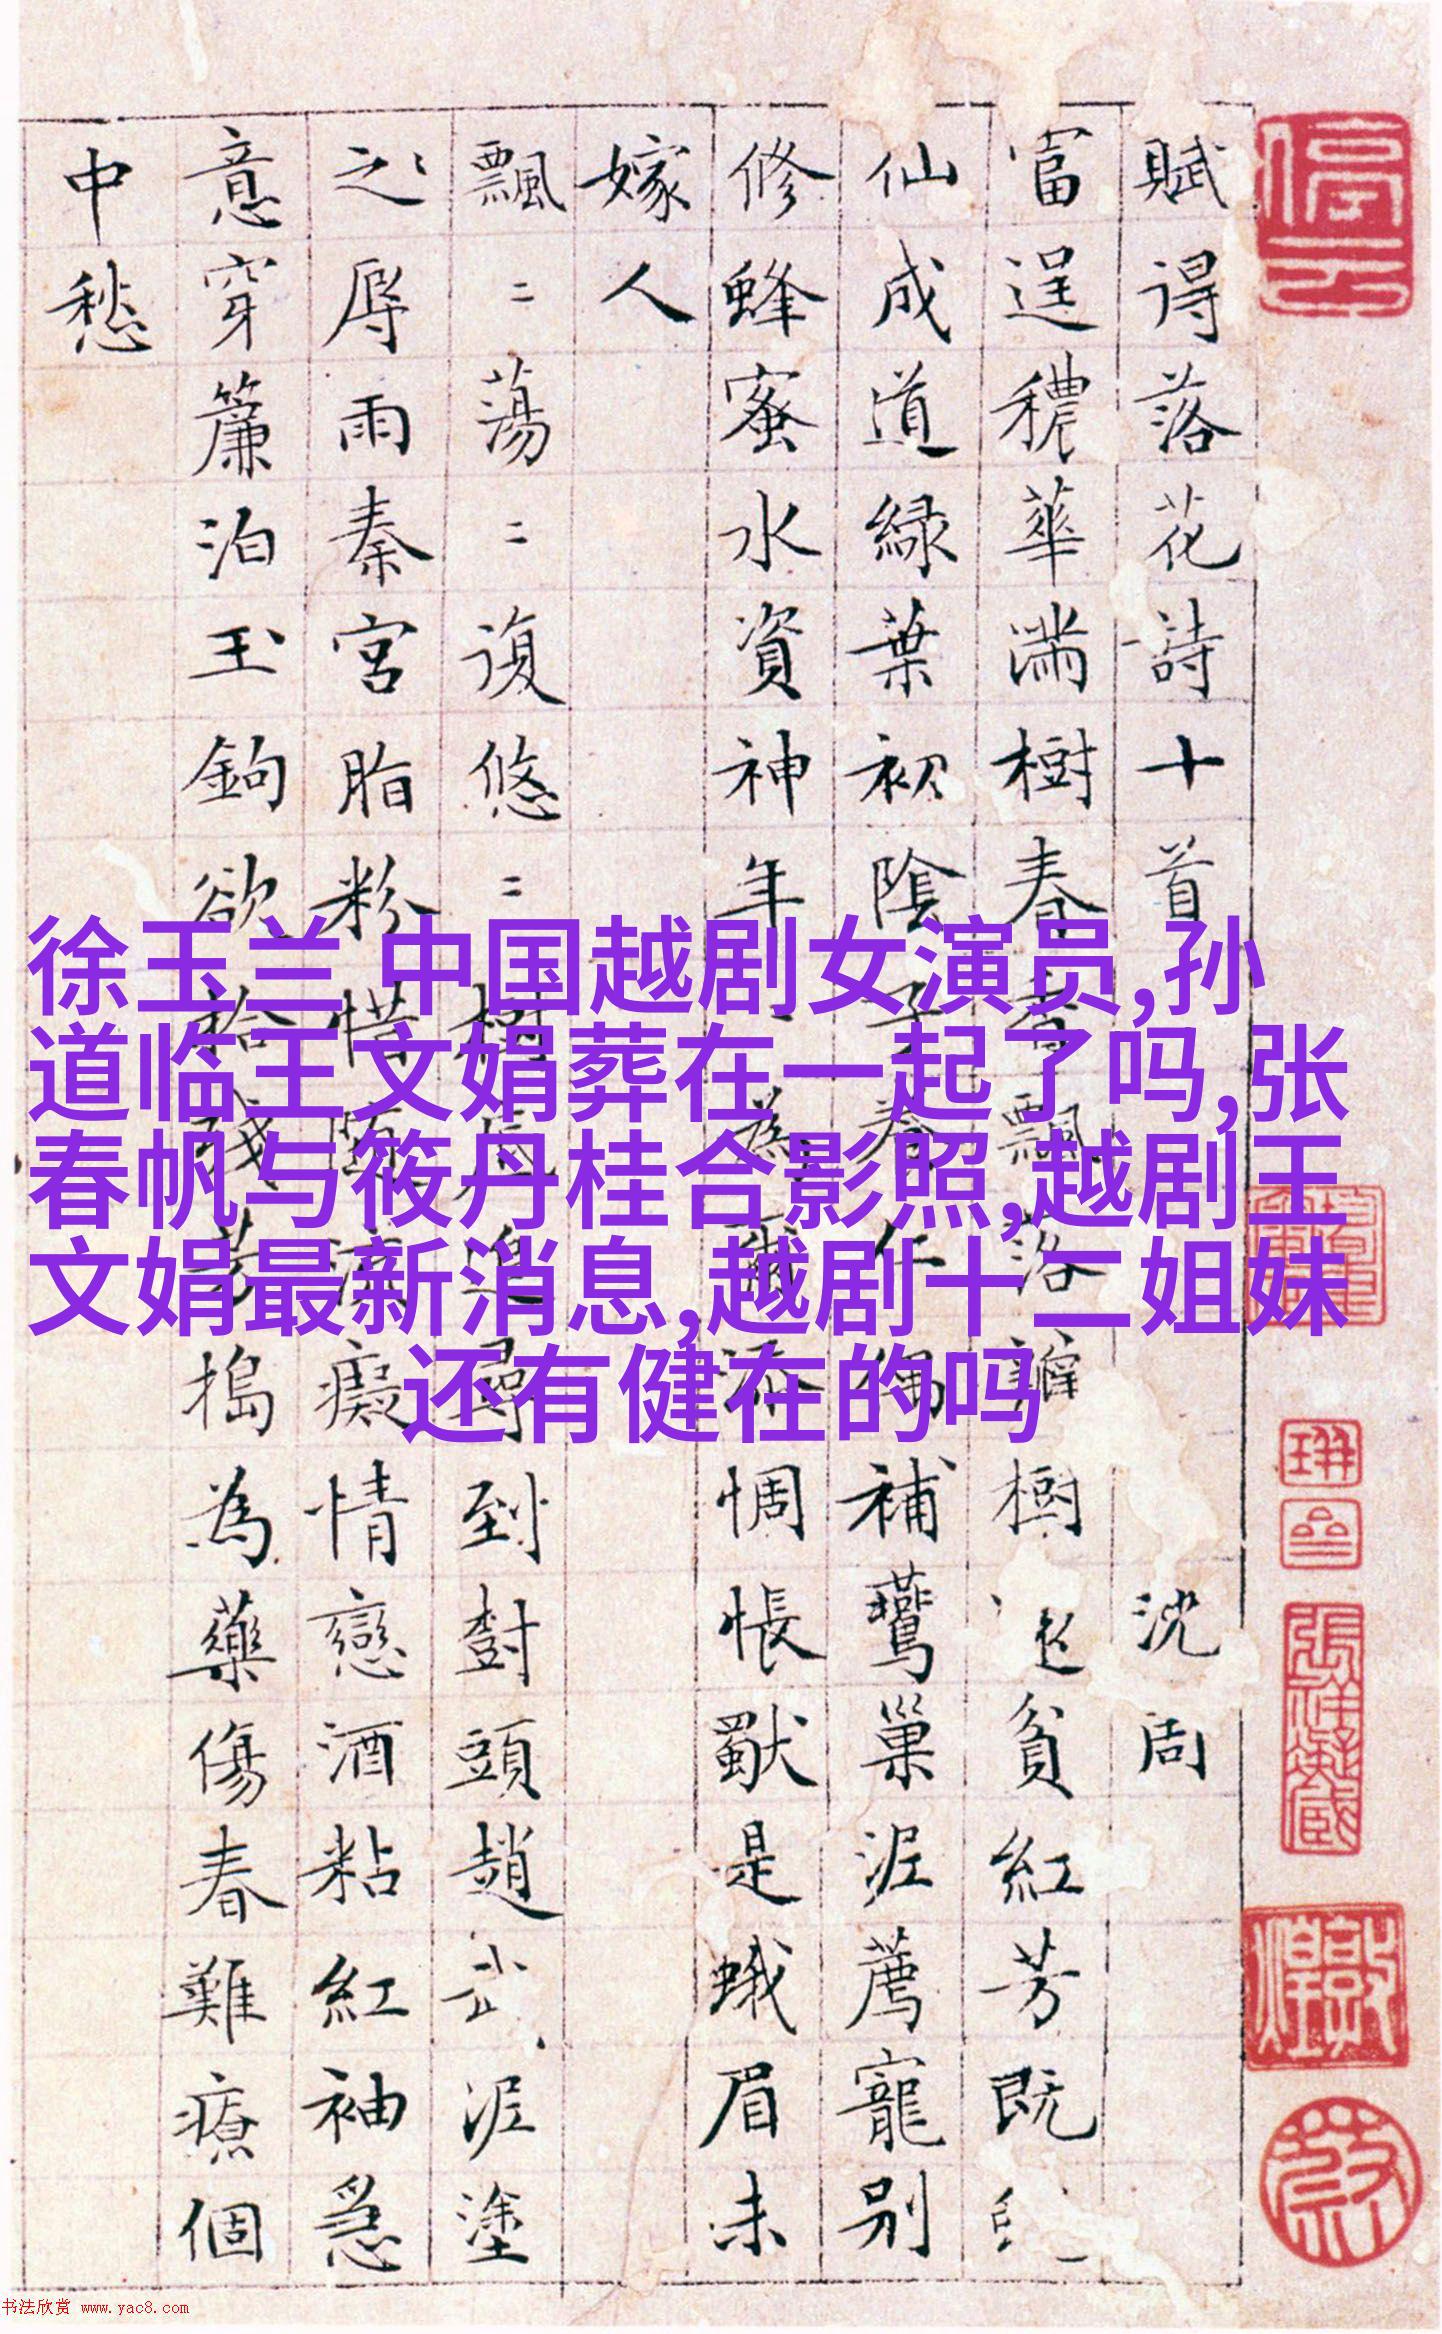 賦得落花詩十首 沈周
富逞穠華滿樹春香飄落瓣樹還貧紅芳既
仙成道綠葉初陰子養仁偶補鶯巢泥薦寵別
修蜂蜜水資神年為爾添惆悵是蛾眉未
嫁人
飄=蕩=復悠=樹底追尋到樹頭趙武泥塗
之辱雨秦宮脂粉惜隨流癡情戀酒粘紅袖急
意穿簾泊玉鉤欲拾殘芳搗為藥傷春難療個
中愁
徐玉兰 中国越剧女演员,孙
道临王文娟葬在一起了吗,张
春帆与筱丹桂合影照,越剧王
文娟最新消息,越剧十二姐妹
还有健在的吗
书法欣赏 www.yac8.com